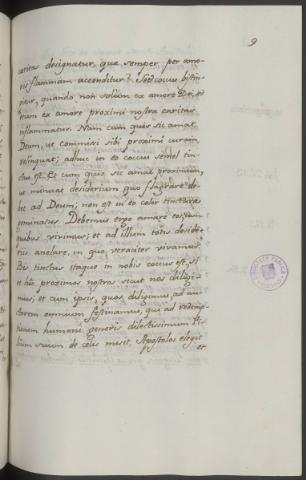 9
caritas designatur, quæ semper per amo-
ris flammam accenditur? Sed coccus bistin-
gitur, quando non solum ex amore Dei, et
etiam ex amore proximi nostra caritas
inflammatur. Nam cum quis sic amat
Deum, ut commissi sibi proximi curam
relinquat; adhuc in eo coccus semel tin-
ctus est. Et cum quis sic amat proximum,
ut minuat desiderium quo flagrare de-
bet ad Deum; non est in eo color tincturæ
geminatus. Debemus ergo amare eos, cum
quibus vivimus; et ad illum totis deside-
riis anelare, in quo veraciter vivamus.
Bis tinctus itaque in nobis coccus est, si
et hic proximos nostros sicut nos diligi-
mus; et cum ipsis, quos diligimus, ad au-
ctorem omnium festinamus, qui ad redemp-
tionem humani generis dilectissimum fi-
lium suum de cœlis misit, Apostolos elegit
et